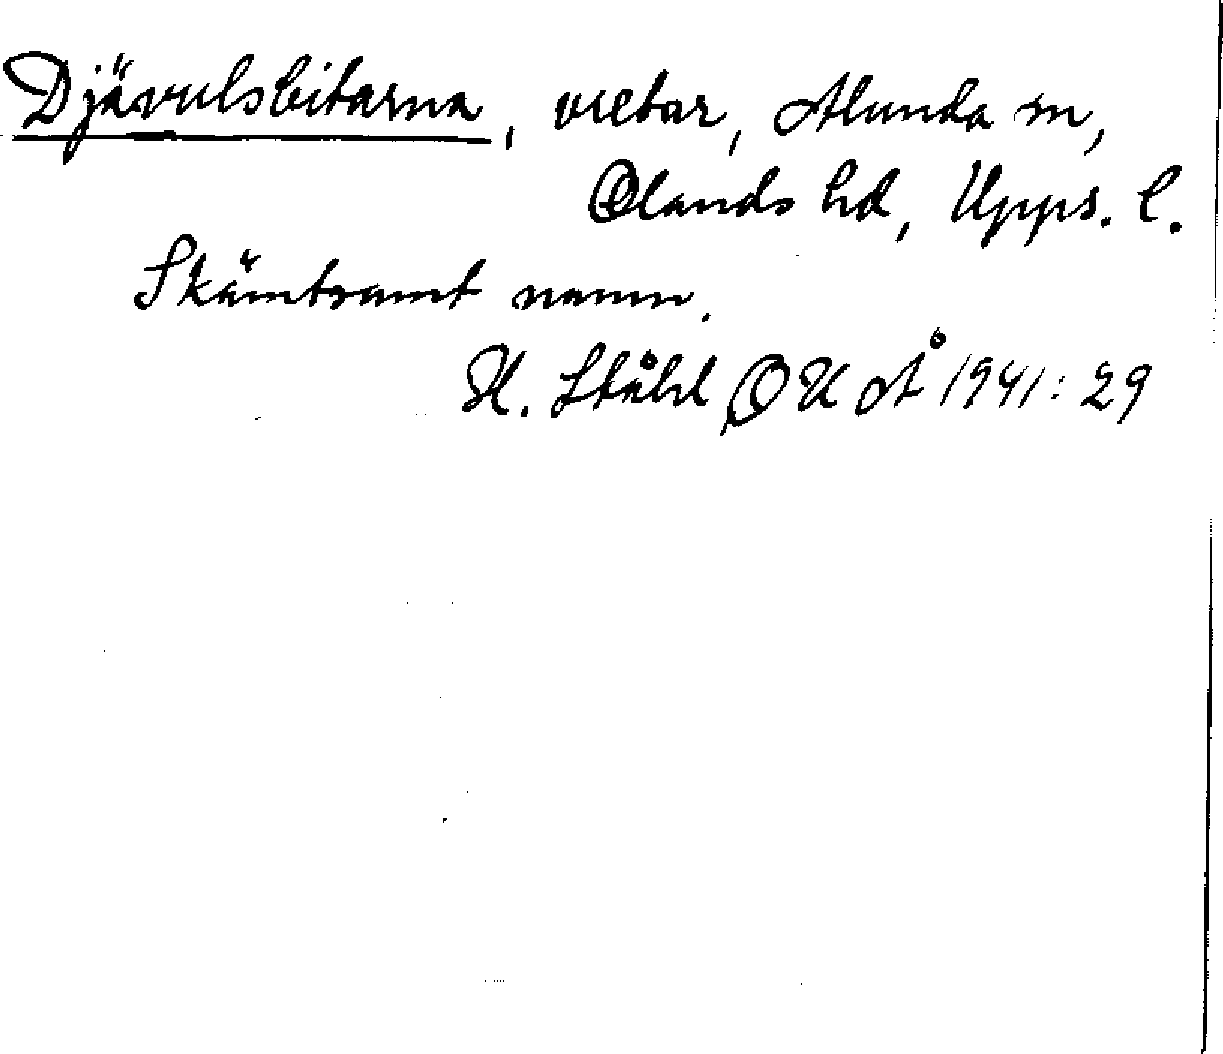 Djävulsbitarna, vretar, Alunda sn,
Olands hd, Upps. l.
Skämtsamt namn.
H. Ståhl OUÅ 1941: 29